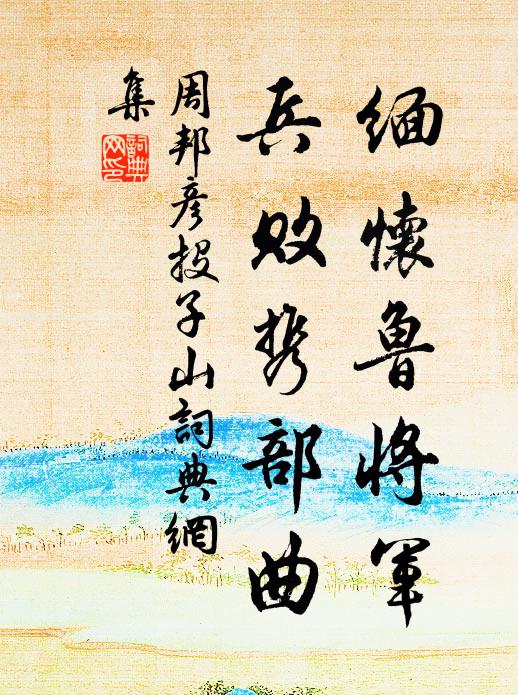 緬懷魯將軍
兵敗携部曲
周邦彥投子山詞典網
集
詞典
网印